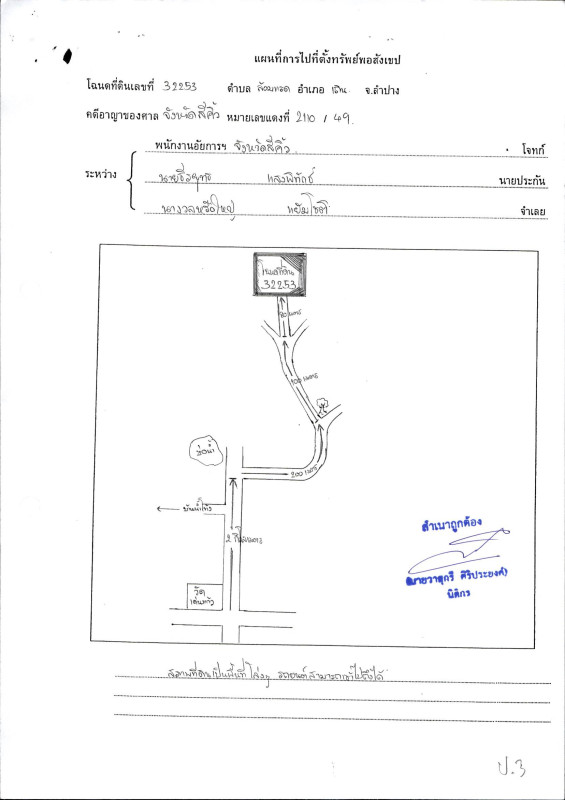 แผนที่การไปที่ตั้งทรัพย์พอสังเขป
โฉนดที่ดินเลขที่ 32253 ตำบล ล้อมแรด อำเภอ เถิน จ.ลำปาง
คดีอาญาของศาล จังหวัดสีคิ้ว หมายเลขแดงที่ 2110 / 49
พนักงานอัยการฯ จังหวัดสีคิ้ว โจทก์
ระหว่าง
แสงพิทักษ์ นายประกัน
นางวลหรือใหญ่ แย้มโชติ จำเลย
โฉนดที่ดิน
32253
80 เมตร
100 เมตร
บ่อน้ำ
200 เมตร
2 กิโลเมตร
วัด
สำเนาถูกต้อง
(นายวาสุกรี ศิริประยงค์)
นิติกร
สภาพที่ดินเป็นพื้นที่โล่งๆ รถยนต์สามารถเข้าไปถึงได้
ป.3